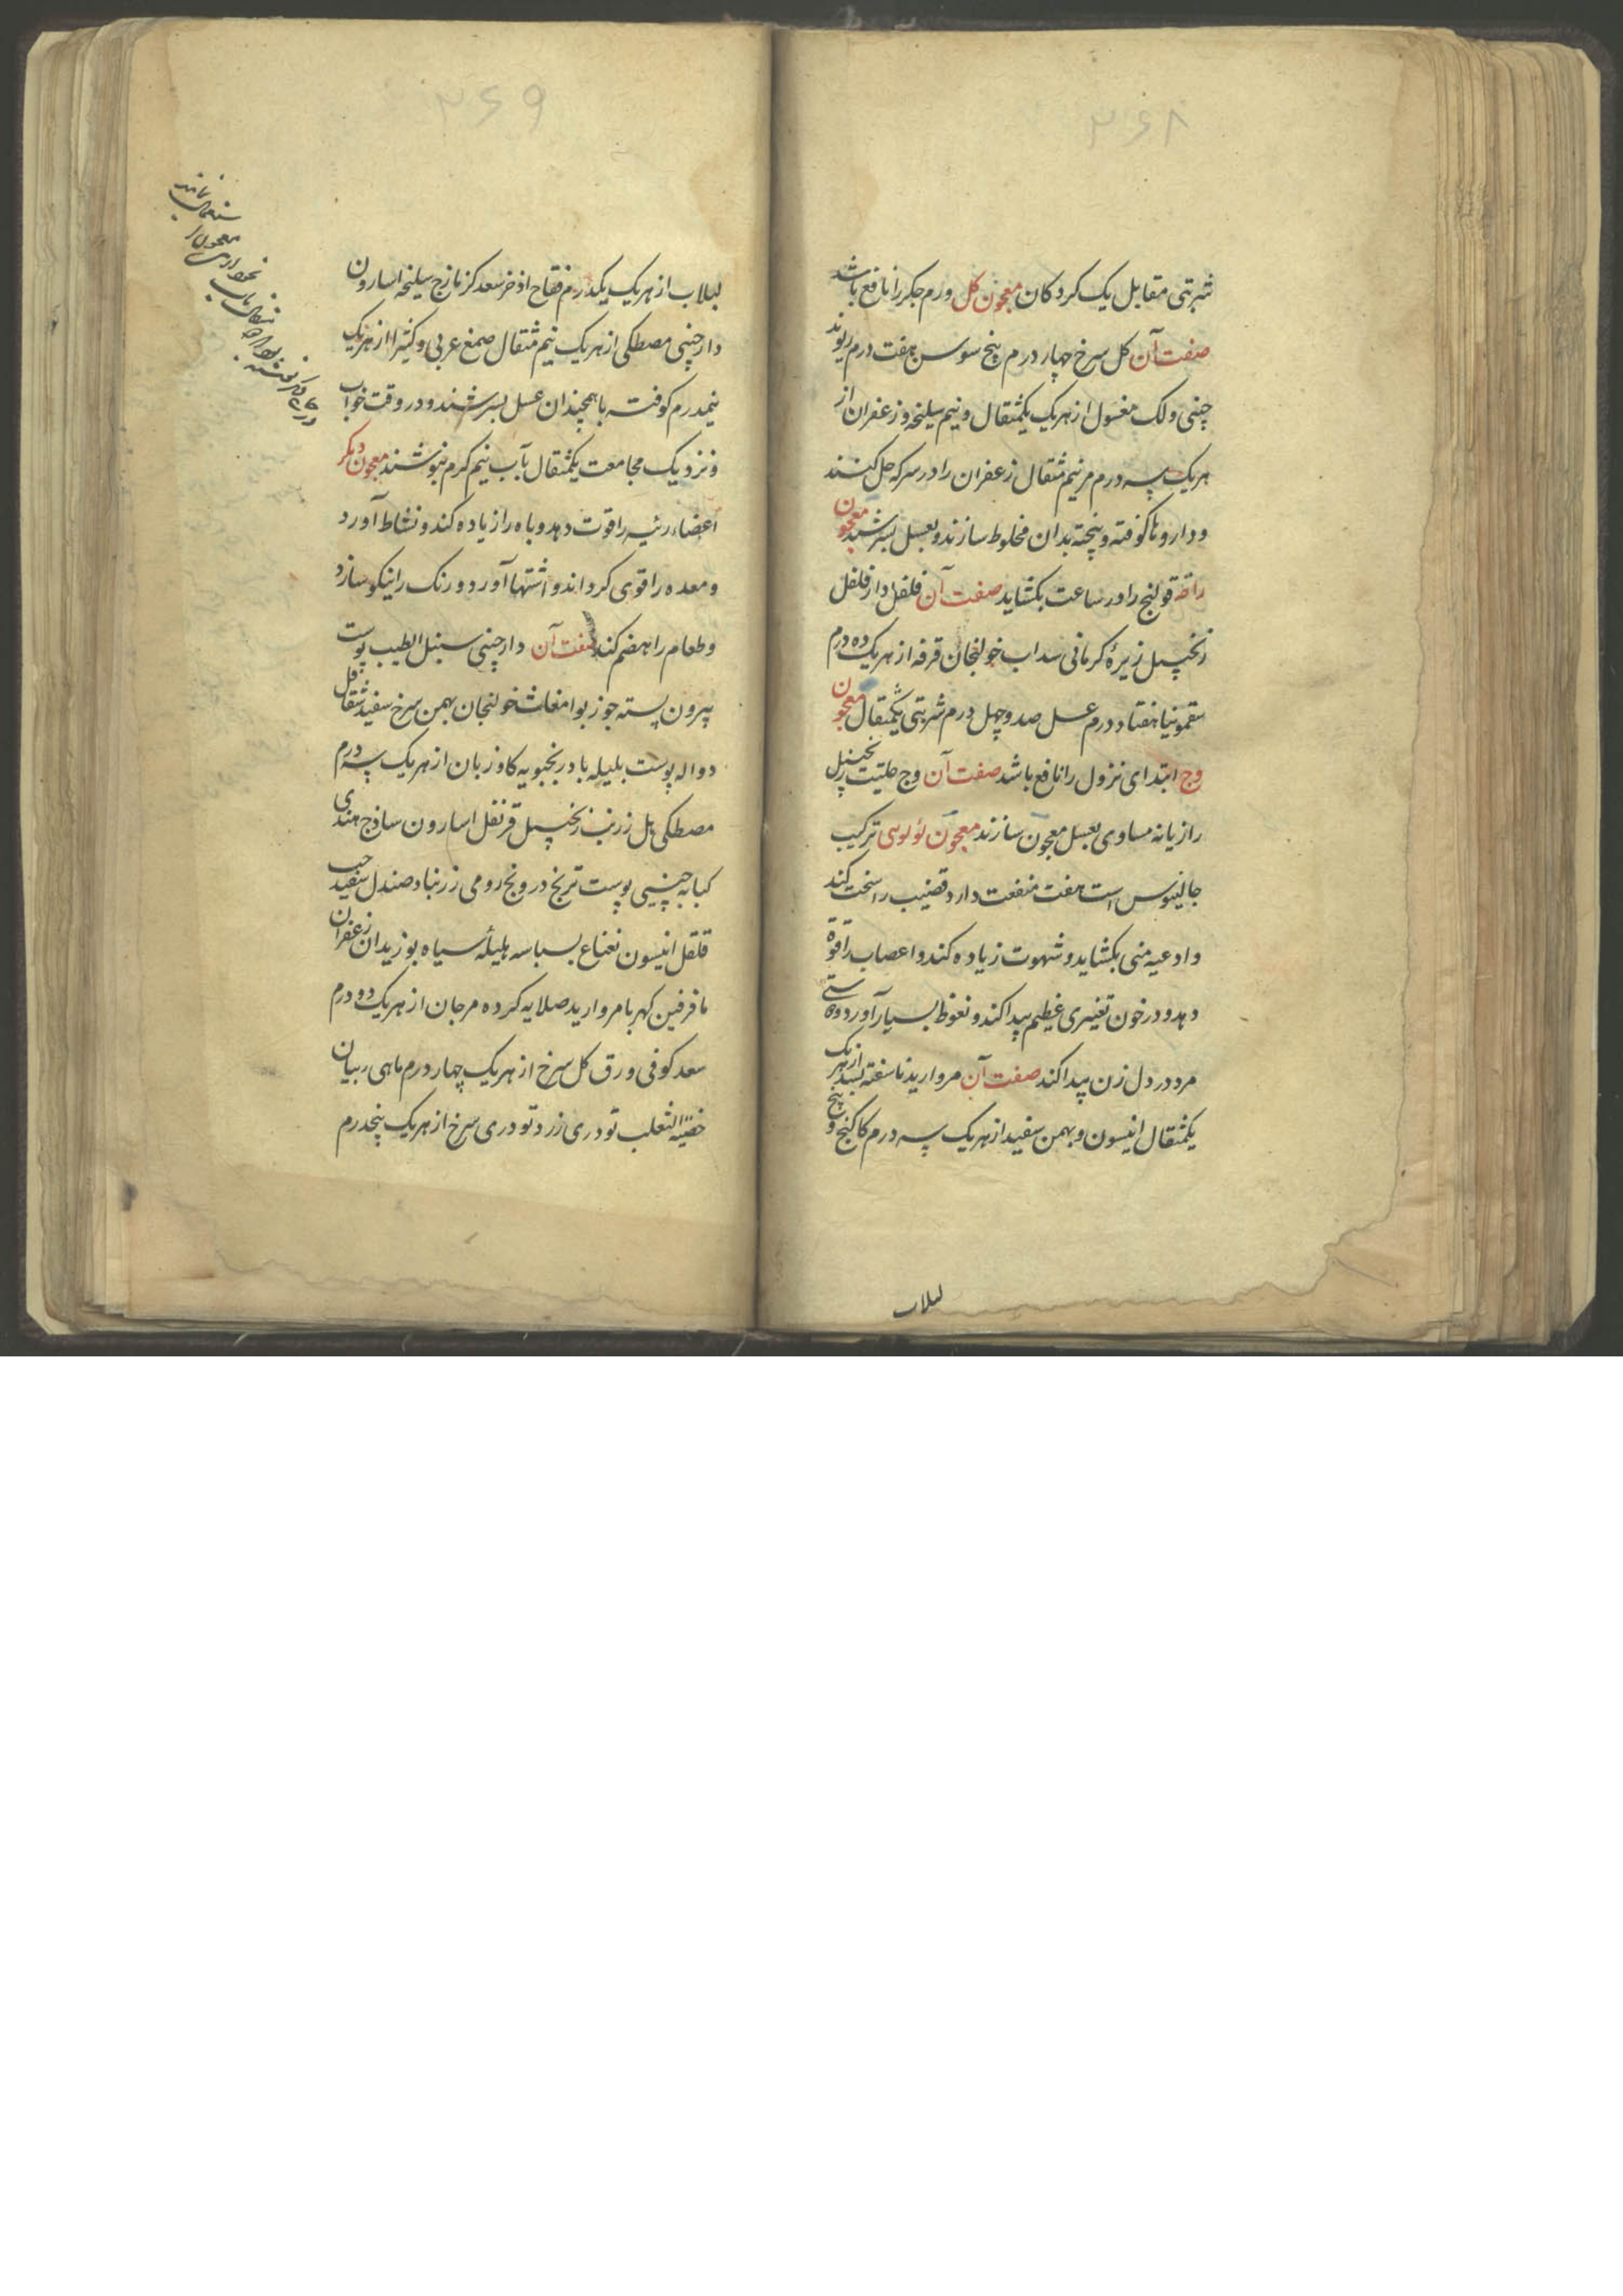 ۳۶۸
شربتی مقابل یک کردکان معجون کل ورم جکر را نافع باشد
صفت آن کل سرخ چهار درم بیخ سوسن هفت درم ریوند
چینی و لک مغسول از هر یک یکمثقال و نیم سلیخه و زعفران از
هر یک سه درم مر نیم مثقال زعفران را در سرکه حل کنند
و داروها کوفته و پیخته بدان مخلوط سازند و بعسل بسرشند معجون
قولنج را در ساعت بکشاید صفت آن فلفل دار فلفل
زنجبیل زیرهٔ کرمانی سداب خولنجان قرفه از هر یک ده درم
سقمونیا هفتاد درم عسل صد و چهل درم شربتی یکمثقال معجون
وج ابتدای نزول را نافع باشد صفت آن وج حلتیت زنجبیل
رازیانه مساوی بعسل معجون سازند معجون لؤلوی ترکیب
جالینوس است هفت منفعت دارد قضیب را سخت کند
و ادعیه منی بکشاید و شهوت زیاده کند و اعصاب را قوة
دهد و در خون تغییری عظیم پیدا کند و نعوظ بسیار آورد و دوستی
مرد در دل زن پیدا کند صفت آن مروارید ناسفته بسد از هر یک
یکمثقال انیسون و بهمن سفید از هر یک سه درم کاکنج و بیخ
لبلاب
۳۶۹
لبلاب از هر یک یکدرم فقاح اذخر سعد کزمازج سلیخه اسارون
دارچینی مصطکی از هر یک نیم مثقال صمغ عربی و کتیرا از هر یک
نیمدرم کوفته با همچندان عسل بسرشند و در وقت خواب
و نزدیک مجامعت یکمثقال بآب نیم کرم بنوشند معجون دیکر
اعضاء رئیسه را قوت دهد و باه را زیاده کند و نشاط آورد
و معده را قوی کرداند و اشتها آورد و رنک را نیکو سازد
و طعام را هضم کند صفت آن دارچینی سنبل الطیب پوست
بیرون پسته جوزبوا مغاث خولنجان بهمن سرخ سفید شقاقل
دواله پوست بلیله بادرنجبویه کاوزبان از هر یک سه درم
مصطکی هل زرنب زنجبیل قرنفل اسارون ساذج هندی
کبابه چینی پوست ترنج درونج رومی زرنباد صندل سفید حب
قلقل انیسون نعناع بسباسه هلیلهٔ سیاه بوزیدان زعفران
مافرفین کهربا مروارید صلایه کرده مرجان از هر یک دو درم
سعد کوفی ورق کل سرخ از هر یک چهار درم ماهی ربیان
خصیة الثعلب تودری زرد تودری سرخ از هر یک پنجدرم